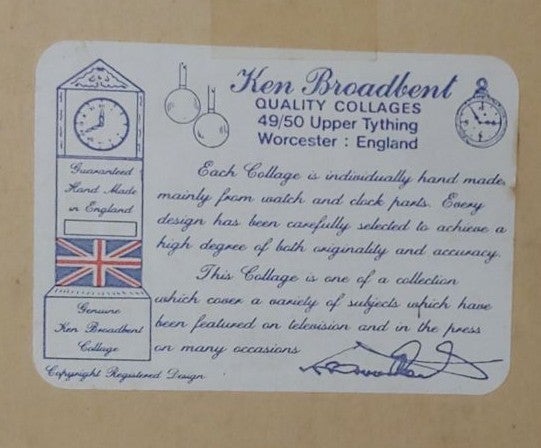 Ken Broadbent
QUALITY COLLAGES
49/50 Upper Tything
Worcester : England
Guaranteed
Hand Made
in England
Genuine
Ken Broadbent
Collage
Each Collage is individually hand made,
mainly from watch and clock parts. Every
design has been carefully selected to achieve a
high degree of both originality and accuracy.
This Collage is one of a collection
which cover a variety of subjects which have
been featured on television and in the press
on many occasions
Copyright Registered Design